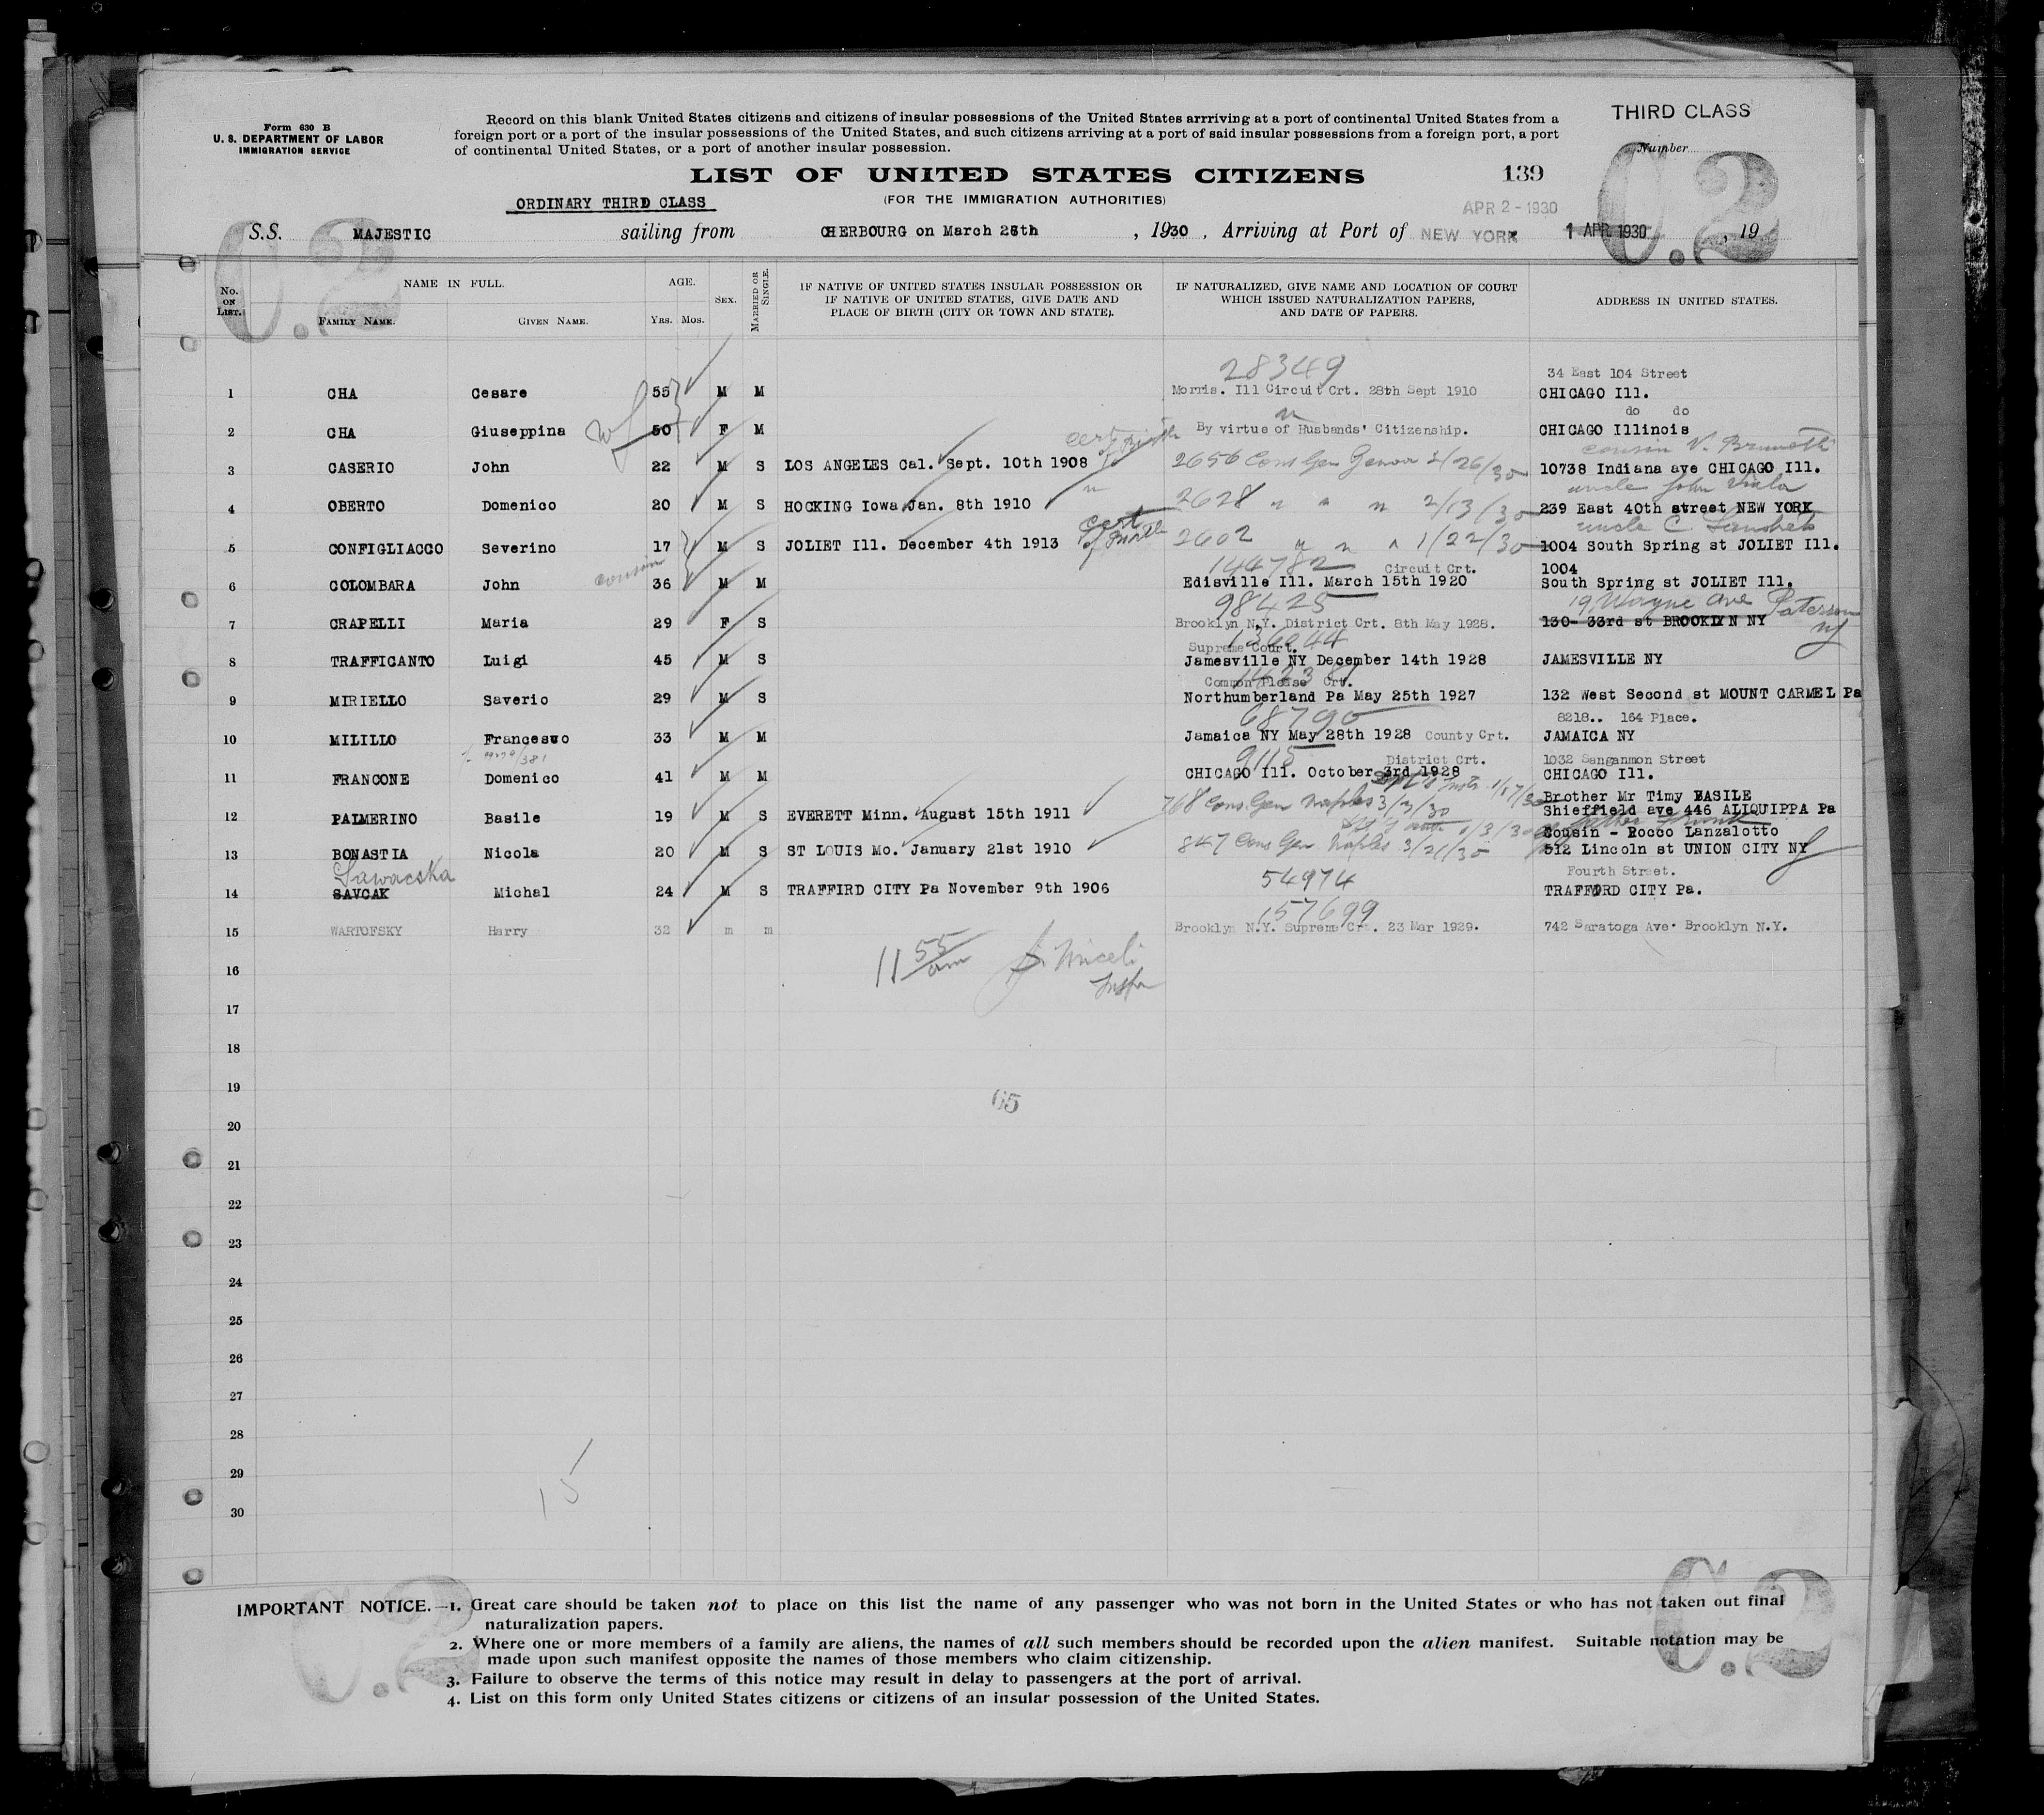 Form 630 B
U. S. DEPARTMENT OF LABOR
IMMIGRATION SERVICE
Record on this blank United States citizens and citizens of insular possessions of the United States arrriving at a port of continental United States from a
foreign port or a port of the insular possessions of the United States, and such citizens arriving at a port of said insular possessions from a foreign port, a port
of continental United States, or a port of another insular possession.
THIRD CLASS
Number
C.2
LIST OF UNITED STATES CITIZENS
139
ORDINARY THIRD CLASS
(FOR THE IMMIGRATION AUTHORITIES)
APR 2 - 1930
C.2
S.S. MAJESTIC sailing from CHERBOURG on March 26th , 1930 , Arriving at Port of NEW YORK 1 APR 1930 , 19
No. ON LIST. NAME IN FULL. AGE. SEX. MARRIED OR SINGLE. IF NATIVE OF UNITED STATES INSULAR POSSESSION OR IF NATIVE OF UNITED STATES, GIVE DATE AND PLACE OF BIRTH (CITY OR TOWN AND STATE). IF NATURALIZED, GIVE NAME AND LOCATION OF COURT WHICH ISSUED NATURALIZATION PAPERS, AND DATE OF PAPERS. ADDRESS IN UNITED STATES.
FAMILY NAME. GIVEN NAME. YRS. MOS.
28349 34 East 104 Street
1 CHA Cesare 55 M M Morris. Ill Circuit Crt. 28th Sept 1910 CHICAGO Ill.
do do
2 CHA Giuseppina wf 50 F M By virtue of Husbands' Citizenship. CHICAGO Illinois
cert of Birth cousin V. Brunetti
3 CASERIO John 22 M S LOS ANGELES Cal. Sept. 10th 1908 2656 Cons Gen Genoa 2/26/30 10738 Indiana ave CHICAGO Ill.
uncle John Viola
4 OBERTO Domenico 20 M S HOCKING Iowa Jan. 8th 1910 " 2628 " " " 2/13/30 239 East 40th street NEW YORK
cert of Birth uncle C.
5 CONFIGLIACCO Severino 17 M S JOLIET Ill. December 4th 1913 2602 " " " 1/22/30 1004 South Spring st JOLIET Ill.
cousin 144782 Circuit Crt. 1004
6 COLOMBARA John 36 M M Edisville Ill. March 15th 1920 South Spring st JOLIET Ill.
98425 19 Wayne Ave Paterson NJ
7 CRAPELLI Maria 29 F S Brooklyn N.Y. District Crt. 8th May 1928. 130- 33rd st BROOKLYN NY
Supreme Court.
8 TRAFFICANTO Luigi 45 M S Jamesville NY December 14th 1928 JAMESVILLE NY
Common Please Crt.
9 MIRIELLO Saverio 29 M S Northumberland Pa May 25th 1927 132 West Second st MOUNT CARMEL Pa
68790 8218.. 164 Place.
10 MILILLO Francesco 33 M M Jamaica NY May 28th 1928 County Crt. JAMAICA NY
9115 District Crt. 1032 Sanganmon Street
11 FRANCONE Domenico 41 M M CHICAGO Ill. October 3rd 1928 CHICAGO Ill.
Brother Mr Timy BASILE
12 PALMERINO Basile 19 M S EVERETT Minn. August 15th 1911 768 Cons Gen Naples 3/3/30 Shieffield ave 446 ALIQUIPPA Pa
Cousin - Rocco Lanzalotto
13 BONASTIA Nicola 20 M S ST LOUIS Mo. January 21st 1910 847 Cons Gen Naples 3/21/30 512 Lincoln st UNION CITY NY
Sawacska 54974 Fourth Street.
14 SAVCAK Michal 24 M S TRAFFIRD CITY Pa November 9th 1906 TRAFFORD CITY Pa.
157699
15 WARTOFSKY Harry 32 m m Brooklyn N.Y. Supreme Crt. 23 Mar 1929. 742 Saratoga Ave. Brooklyn N.Y.
11 55 am J. Miceli
Inspr
16
17
18
19
65
20
21
22
23
24
25
26
27
28
29
15
30
IMPORTANT NOTICE.—1. Great care should be taken not to place on this list the name of any passenger who was not born in the United States or who has not taken out final
naturalization papers.
2. Where one or more members of a family are aliens, the names of all such members should be recorded upon the alien manifest. Suitable notation may be
made upon such manifest opposite the names of those members who claim citizenship.
3. Failure to observe the terms of this notice may result in delay to passengers at the port of arrival.
4. List on this form only United States citizens or citizens of an insular possession of the United States.
C.2
C.2